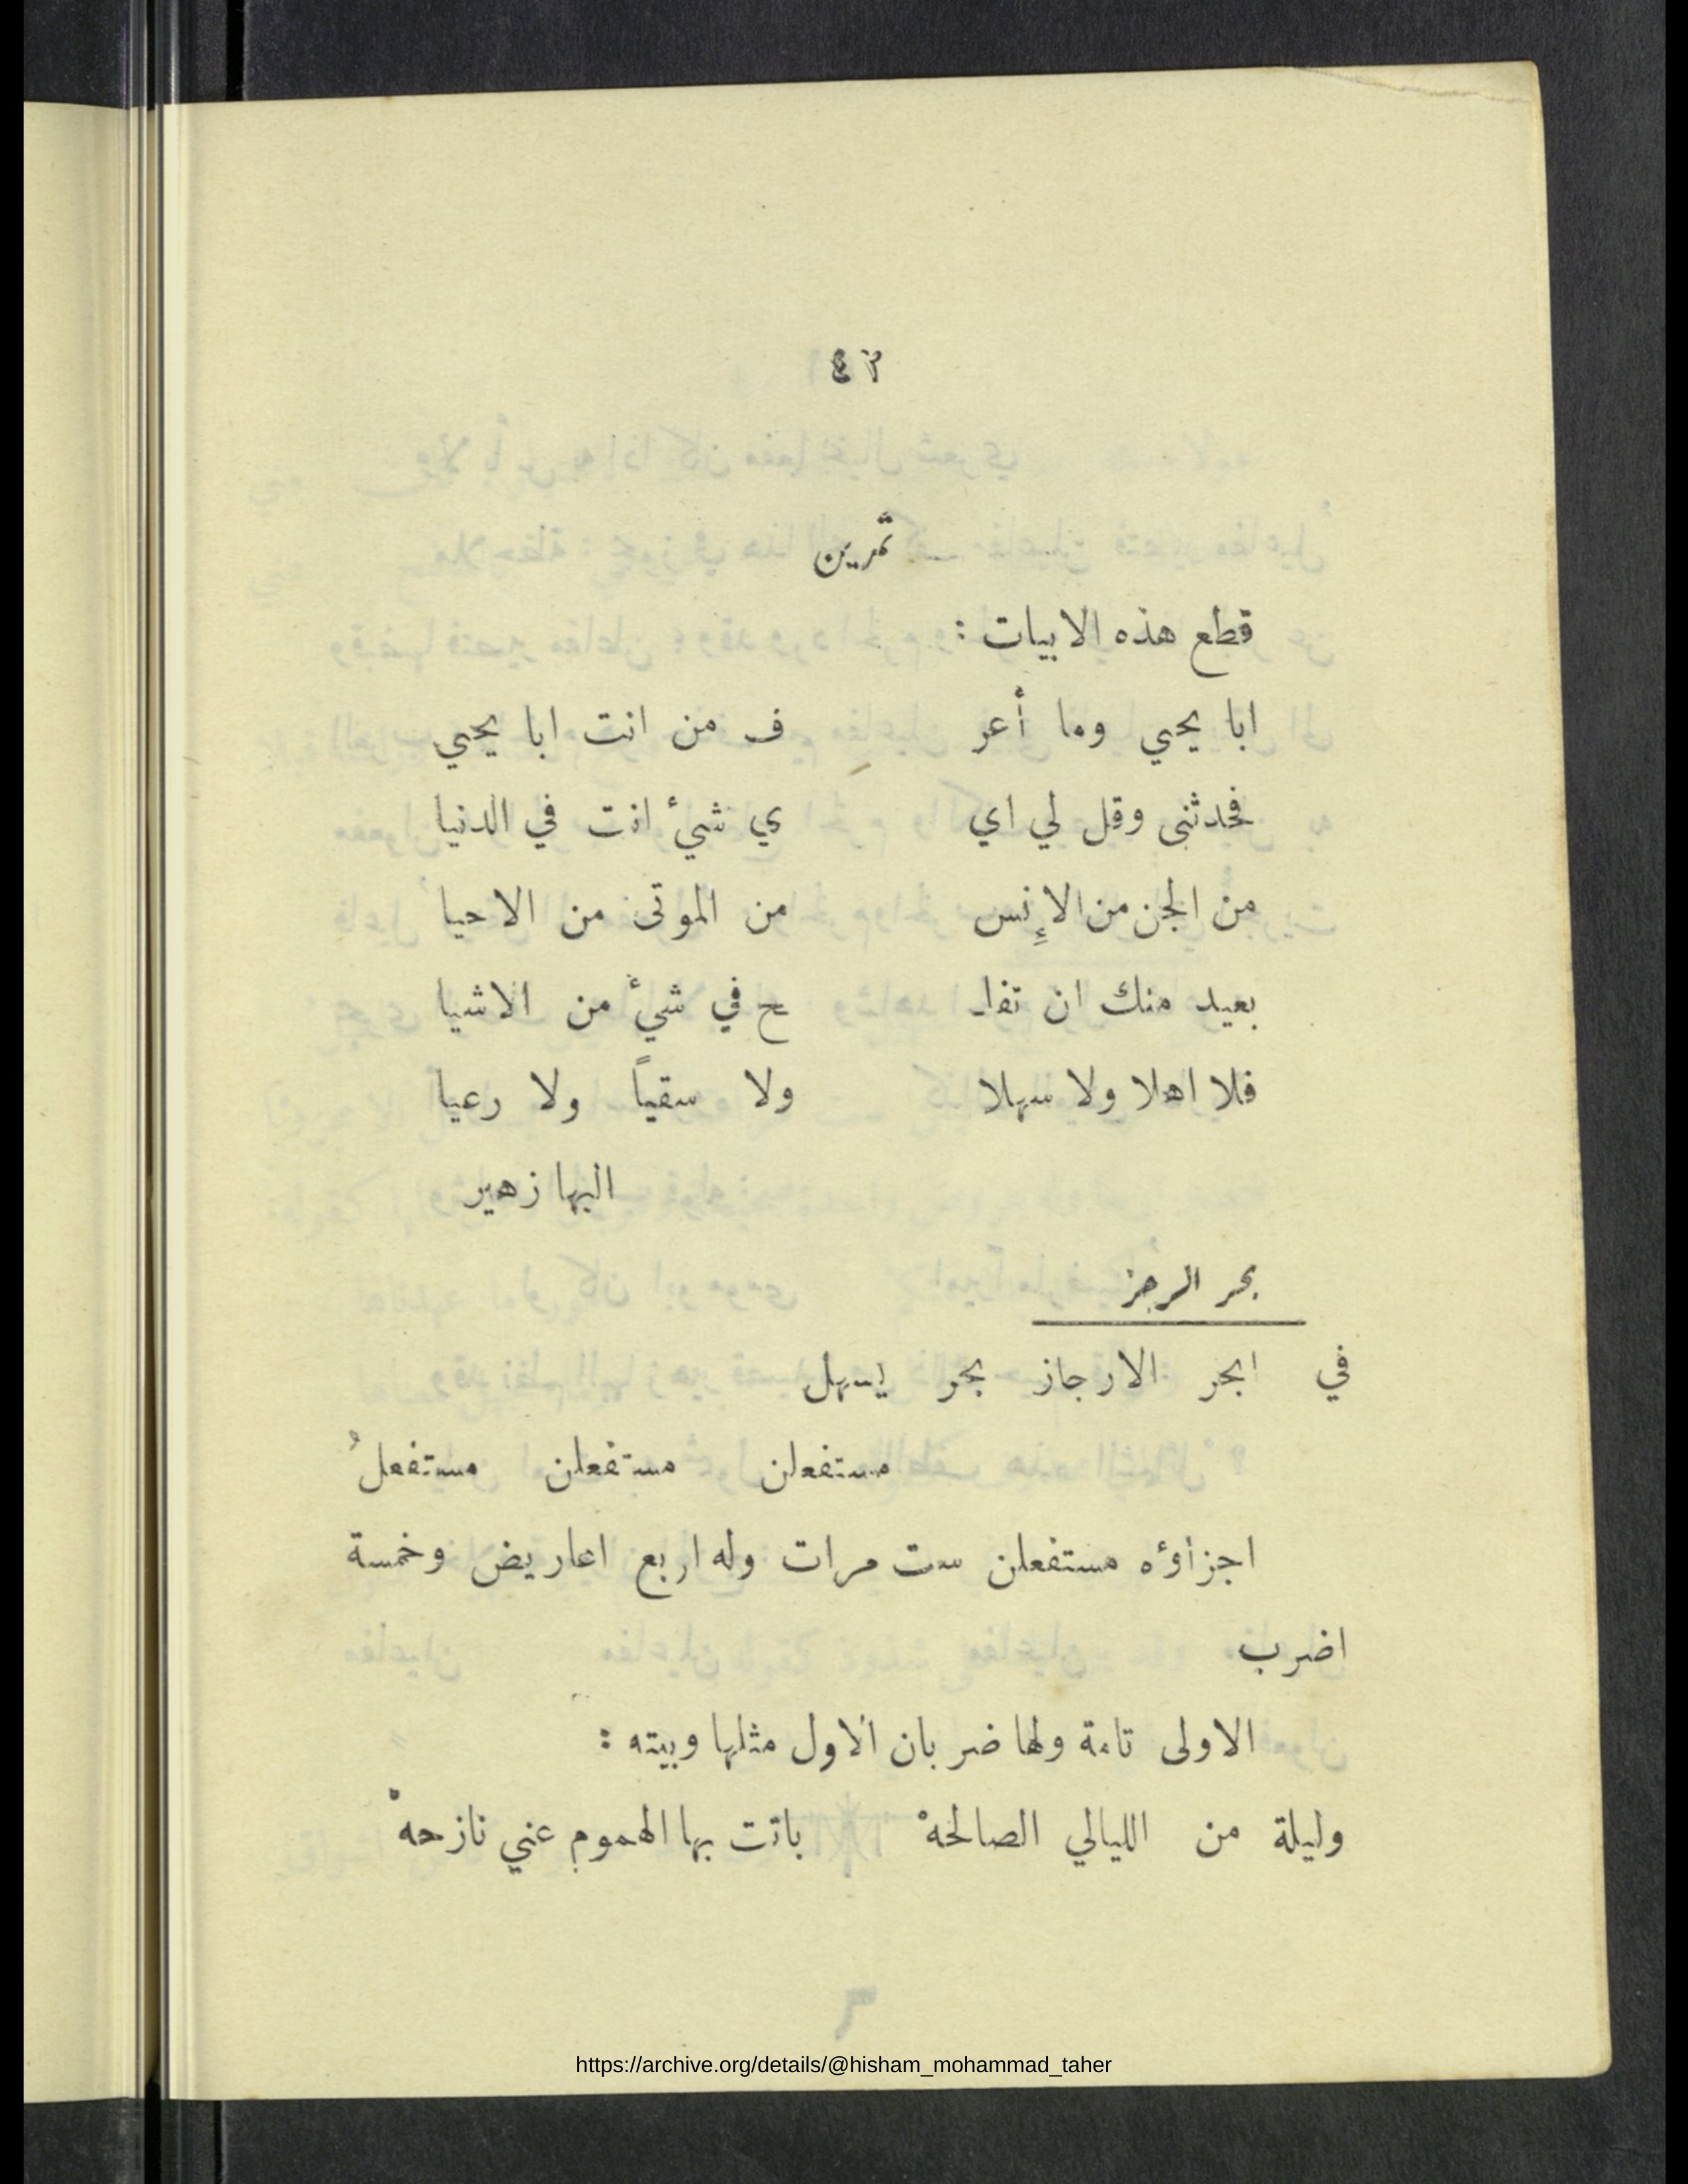 ٤٢
تمرين
قطع هذه الابيات :
ابا يحيي وما أعر ف من انت ابا يحيي
فحدثنى وقل لي اي ي شئ انت في الدنيا
من الجن من الاِنس من الموتى من الاحيا
بعيد منك ان تفلـ ـح في شئ من الاشيا
فلا اهلا ولا سهلا ولا سقياً ولا رعيا
البها زهير
بحر الرجز
في ابحر الارجاز بحر يسهل
مستفعلن مستفعلن مستفعلُ
اجزاؤه مستفعلن ست مرات وله اربع اعاريض وخمسة
اضرب
الاولى تامة ولها ضربان الاول مثلها وبيته :
وليلة من الليالي الصالحهْ باتت بها الهموم عني نازحهْ
https://archive.org/details/@hisham_mohammad_taher